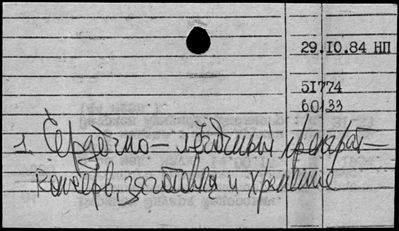 29.10.84 НП
51774
60133
1 Сердечно-лёгочный препарат-
консерв, заготовка и хранение